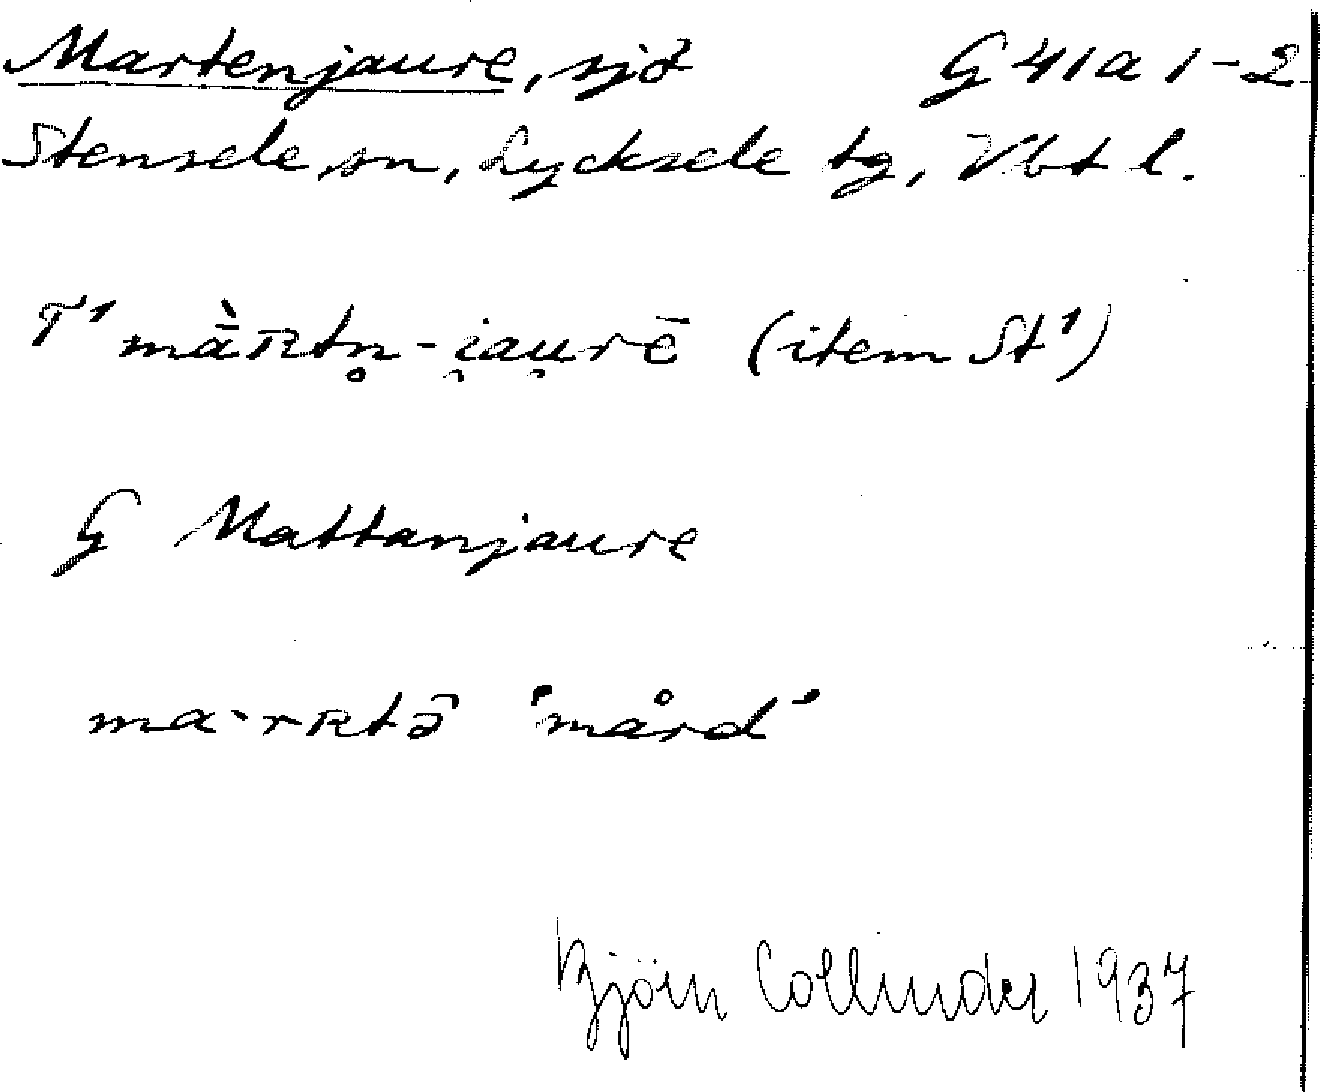 Martenjaure, sjö G 41 a 1-2
Stensele sn, Lycksele tg, Vbt l.
T¹ mā̀ʀtn̥-i̯au̯rē (item St¹)
G Mattanjaure
ma·rʀtə̄ 'mård'
Björn Collinder 1937